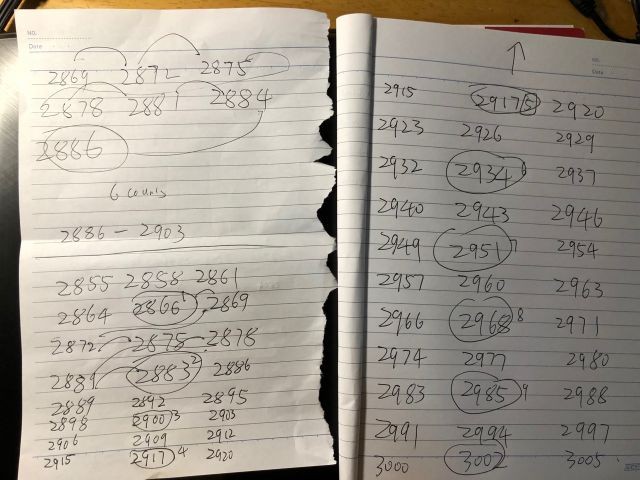 NO.
Date
2869 2872 2875
2878 2881 2884
2886
6 counts
2886 - 2903
2855 2858 2861
2864 2866 1 2869
2872 2875 2878
2881 2883 2 2886
2889 2892 2895
2898 2900 3 2903
2906 2909 2912
2915 2917 4 2920
NO.
Date
2915 2917 5 2920
2923 2926 2929
2932 2934 6 2937
2940 2943 2946
2949 2951 7 2954
2957 2960 2963
2966 2968 8 2971
2974 2977 2980
2983 2985 9 2988
2991 2994 2997
3000 3002 3005